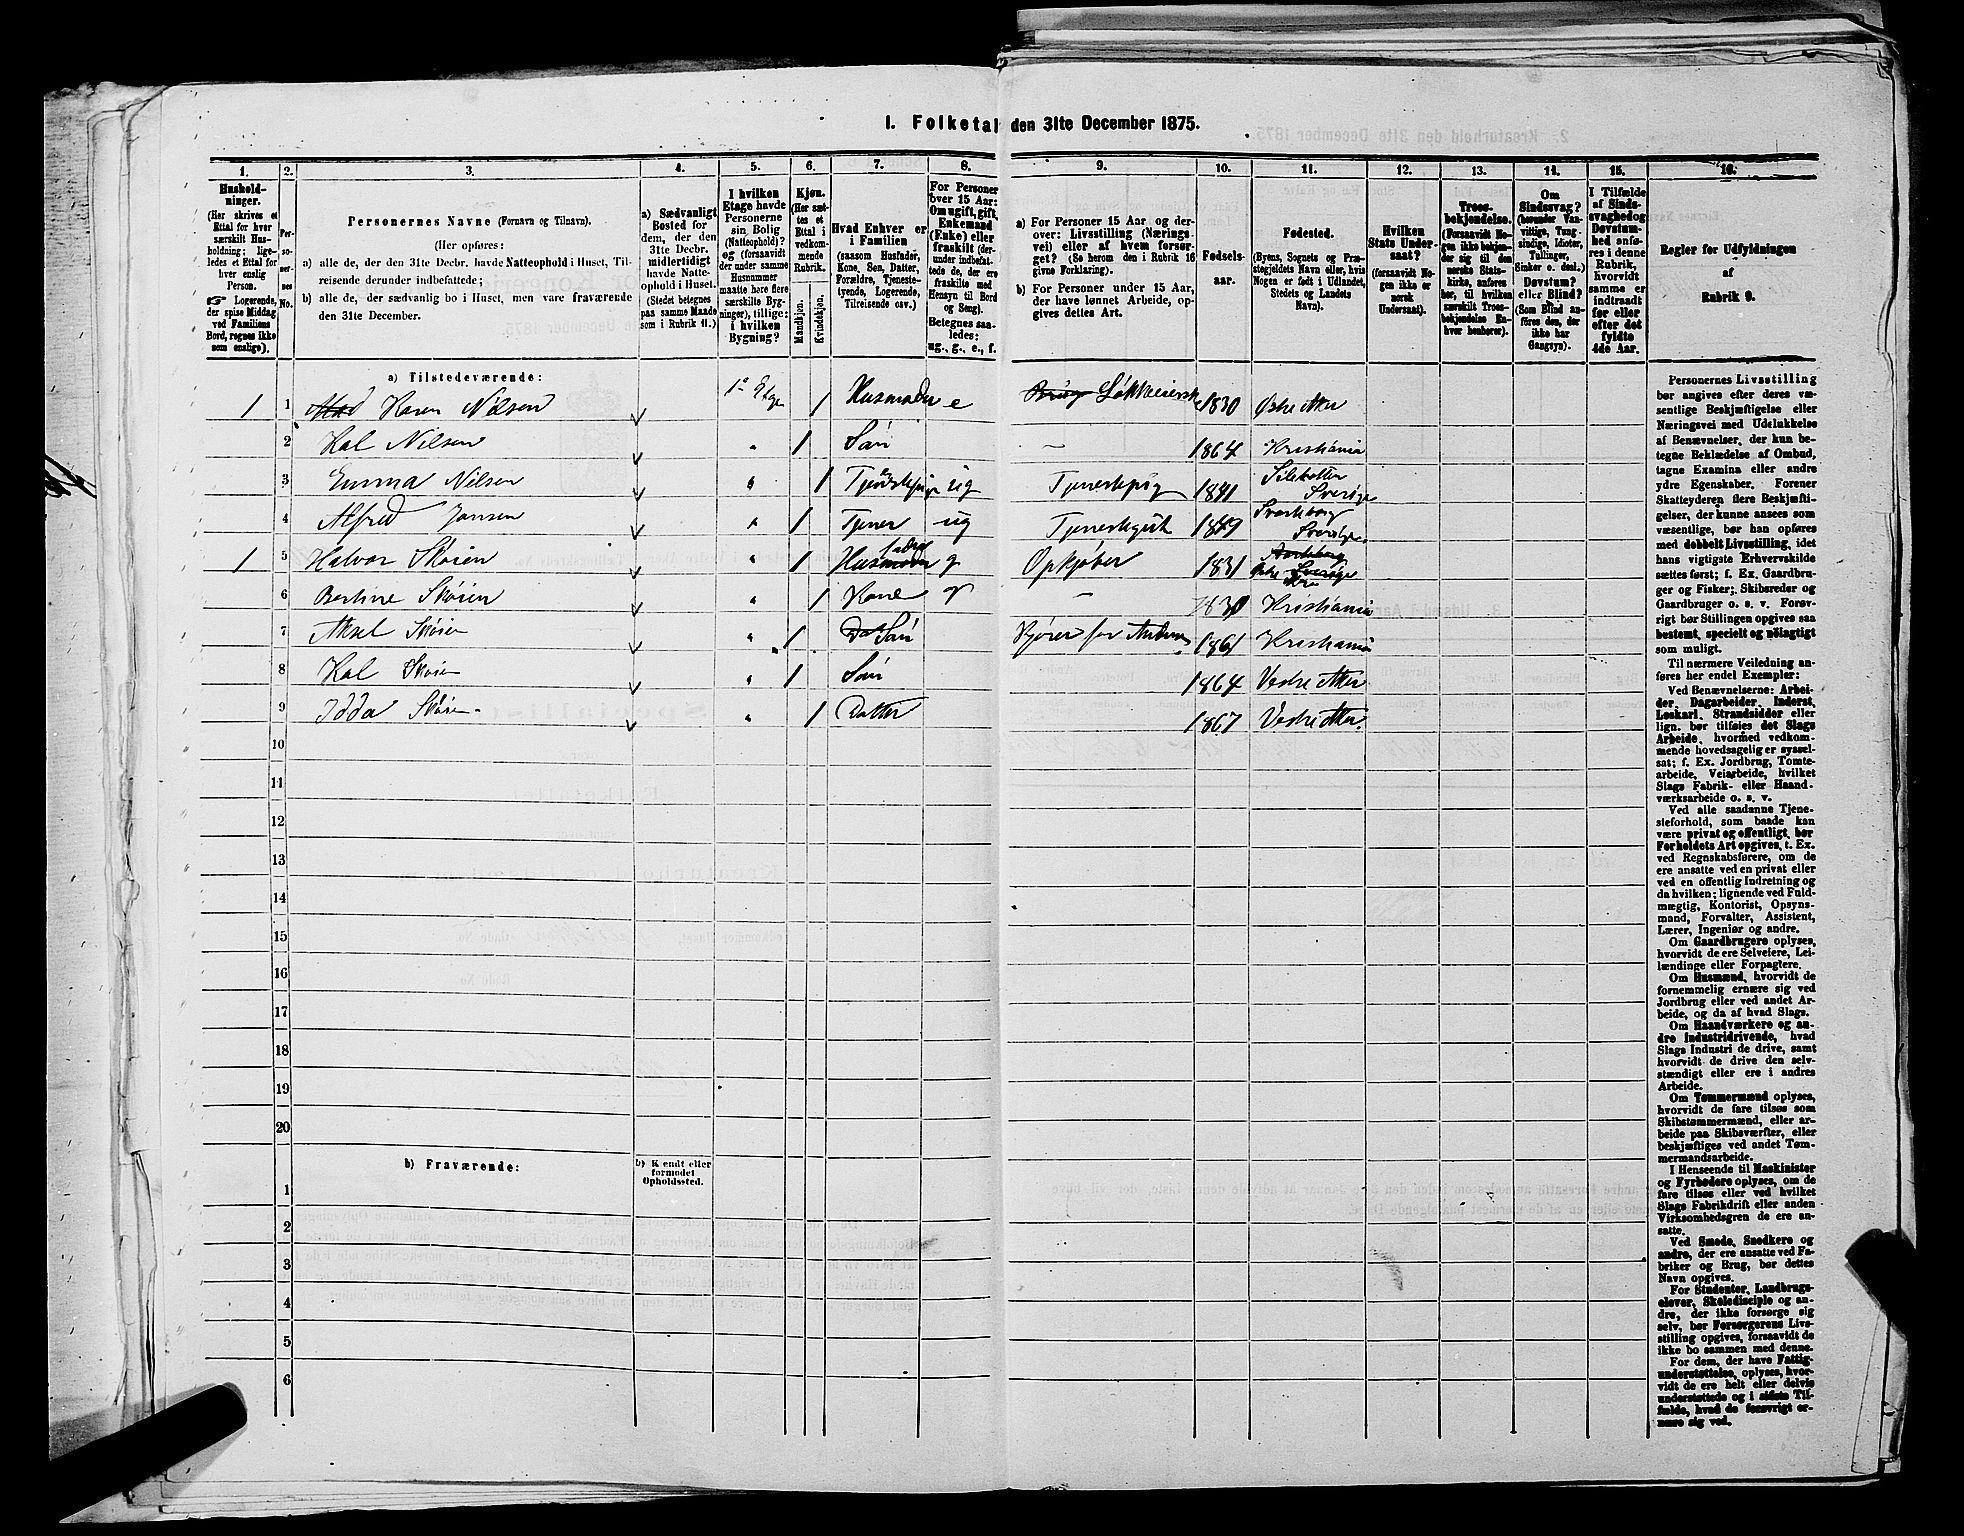 1. Folketal den 31te December 1875.
1. 2. 3. 4. 5. 6. 7. 8. 9. 10. 11. 12. 13. 14. 15. 16.
Hushold-
ninger.
(Her skrives et
Ettal for hver
særskilt Hus-
holdning; lige-
ledes et Ettal for
hver enslig
Person.
☞ Logerende,
der spise Middag
ved Familiens
Bord, regnes ikke
som enslige).
Per-
so-
ner-
nes
No.
Personernes Navne (Fornavn og Tilnavn).
(Her opføres:
a) alle de, der den 31te Decbr. havde Natteophold i Huset, Til-
reisende derunder indbefattede;
b) alle de, der sædvanlig bo i Huset, men vare fraværende
den 31te December.
a) Sædvanligt
Bosted for
dem, der den
31te Decbr.
midlertidigt
havde Natte-
ophold i Huset.
(Stedet betegnes
paa samme Maade
som i Rubrik 11.)
I hvilken
Etage havde
Personerne
sin Bolig
(Natteophold)?
og (forsaavidt
der under samme
Husnummer
maatte høre flere
særskilte Byg-
ninger), tillige:
i hvilken
Bygning?
Kjøn.
(Her sæt-
tes et
Ettal i
vedkom-
mende
Rubrik.
Mandkjøn.
Kvindekjøn.
Hvad Enhver er
i Familien
(saasom Husfader,
Kone, Søn, Datter,
Forældre, Tjeneste-
tyende, Logerende,
Tilreisende osv.)
For Personer
over 15 Aar:
Om ugift, gift,
Enkemand
(Enke) eller
fraskilt (der-
under indbefat-
tede de, der ere
fraskilte med
Hensyn til Bord
og Seng).
Betegnes saa-
ledes:
ug., g., e., f.
a) For Personer 15 Aar og der-
over: Livsstilling (Nærings-
vei) eller af hvem forsør-
get? (Se herom den i Rubrik 16
givne Forklaring).
b) For Personer under 15 Aar,
der have lønnet Arbeide, op-
gives dettes Art.
Fødsels-
aar.
Fødested.
(Byens, Sognets og Præ-
stegjeldets Navn eller, hvis
Nogen er født i Udlandet,
Stedets og Landets
Navn).
Hvilken
Stats Under-
saat?
(forsaavidt No-
gen ikke er
norsk
Undersaat).
Troes-
bekjendelse.
(Forsaavidt No-
gen ikke bekjen-
der sig til den
norske Stats-
kirke, anføres
her, til hvilken
særskilt Troes-
bekjendelse En-
hver henhører).
Om
Sindssvag?
(herunder Van-
vittige, Tung-
sindige, Idioter,
Tullinger,
Sinker o. desl.)
Døvstum?
eller Blind?
(Som Blind an-
føres den, der
ikke har
Gangsyn).
I Tilfælde
af Sinds-
svaghed og
Døvstum-
hed anfø-
res i denne
Rubrik,
hvorvidt
samme er
indtraadt
før eller
efter det
fyldte
4de Aar.
Regler for Udfyldningen
af
Rubrik 9.
a) Tilstedeværende:
1 1 Karen Nilsen 1ste Etage 1 Husmoder e 1830 Østre Aker
2 Kal Nilsen " 1 Søn — 1864 Kristiania
3 Emma Nilsen " 1 Tjenstepige ug Tjenestepig 1841 Sverige
4 Alfred Jansen " 1 Tjener ug Tjenestegut 1849 Sverige
1 5 Halvor Skøien " 1 Husfader g Opkjøber 1831
6 Bertine Skøien " 1 Kone g — 1830 Kristiania
7 Aksel Skøien " 1 Søn Kjører for 1861 Kristiania
8 Kal Skøien " 1 Søn 1864 Vestre Aker
9 Idda Skøien " 1 Datter 1867 Vestre Aker.
10
11
12
13
14
15
16
17
18
19
20
b) Fraværende:
b) Kjendt eller
formodet
Opholdssted.
1
2
3
4
5
6
Personernes Livsstilling
bør angives efter deres væ-
sentlige Beskjæftigelse eller
Næringsvei med Udelukkelse
af Benævnelser, der kun be-
tegne Beklædelse af Ombud,
tagne Examina eller andre
ydre Egenskaber. Forener
Skatteyderen flere Beskjæfti-
gelser, der kunne ansees som
væsentlige, bør han opføres
med dobbelt Livsstilling, idet
hans vigtigste Erhvervskilde
sættes først; f. Ex. Gaardbru-
ger og Fisker; Skibsreder og
Gaardbruger o. s. v. Forøv-
rigt bør Stillingen opgives saa
bestemt, specielt og nøiagtigt
som muligt.
Til nærmere Veiledning an-
føres her endel Exempler:
Ved Benævnelserne: Arbei-
der, Dagarbeider, Inderst,
Løskarl, Strandsidder eller
lign. bør tilføies det Slags
Arbeide, hvormed vedkom-
mende hovedsagelig er syssel-
sat; f. Ex. Jordbrug, Tomte-
arbeide, Veiarbeide, hvilket
Slags Fabrik- eller Haand-
værksarbeide o. s. v.
Ved alle saadanne Tjene-
steforhold, som baade kan
være privat og offentligt, bør
Forholdets Art opgives, t. Ex.
ved Regnskabsførere, om de
ere ansatte ved en privat eller
ved en offentlig Indretning og
da hvilken; lignende ved Fuld-
mægtig, Kontorist, Opsyns-
mand, Forvalter, Assistent,
Lærer, Ingeniør og andre.
Om Gaardbrugere oplyses,
hvorvidt de ere Selveiere, Lei-
lændinge eller Forpagtere.
Om Husmænd, hvorvidt de
fornemmelig ernære sig ved
Jordbrug eller ved andet Ar-
beide, og da af hvad Slags.
Om Haandværkere og an-
dre Industridrivende, hvad
Slags Industri de drive, samt
hvorvidt de drive den selv-
stændigt eller ere i andres
Arbeide.
Om Tømmermænd oplyses,
hvorvidt de fare tilsøs som
Skibstømmermænd, eller ar-
beide paa Skibsværfter, eller
beskjæftiges ved andet Tøm-
mermandsarbeide.
I Henseende til Maskinister
og Fyrbødere oplyses, om de
fare tilsøs eller ved hvilket
Slags Fabrikdrift eller anden
Virksomhedsgren de ere an-
satte.
Ved Smede, Snedkere og
andre, der ere ansatte ved Fa-
briker og Brug, bør dettes
Navn opgives.
For Studenter, Landbrugs-
elever, Skoledisciple og an-
dre, der ikke forsørge sig
selv, bør Forsørgerens Livs-
stilling opgives, forsaavidt de
ikke bo sammen med denne.
For dem, der have Fattig-
understøttelse, oplyses, hvor-
vidt de ere helt eller delvis
understøttede og i sidste Til-
fælde, hvad de forøvrigt er-
nære sig ved.